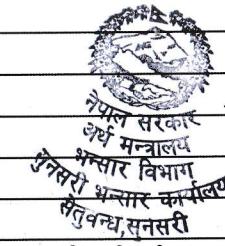 नेपाल सरकार
अर्थ मन्त्रालय
भन्सार विभाग
सुनसरी भन्सार कार्यालय
सेतुवन्ध,सुनसरी